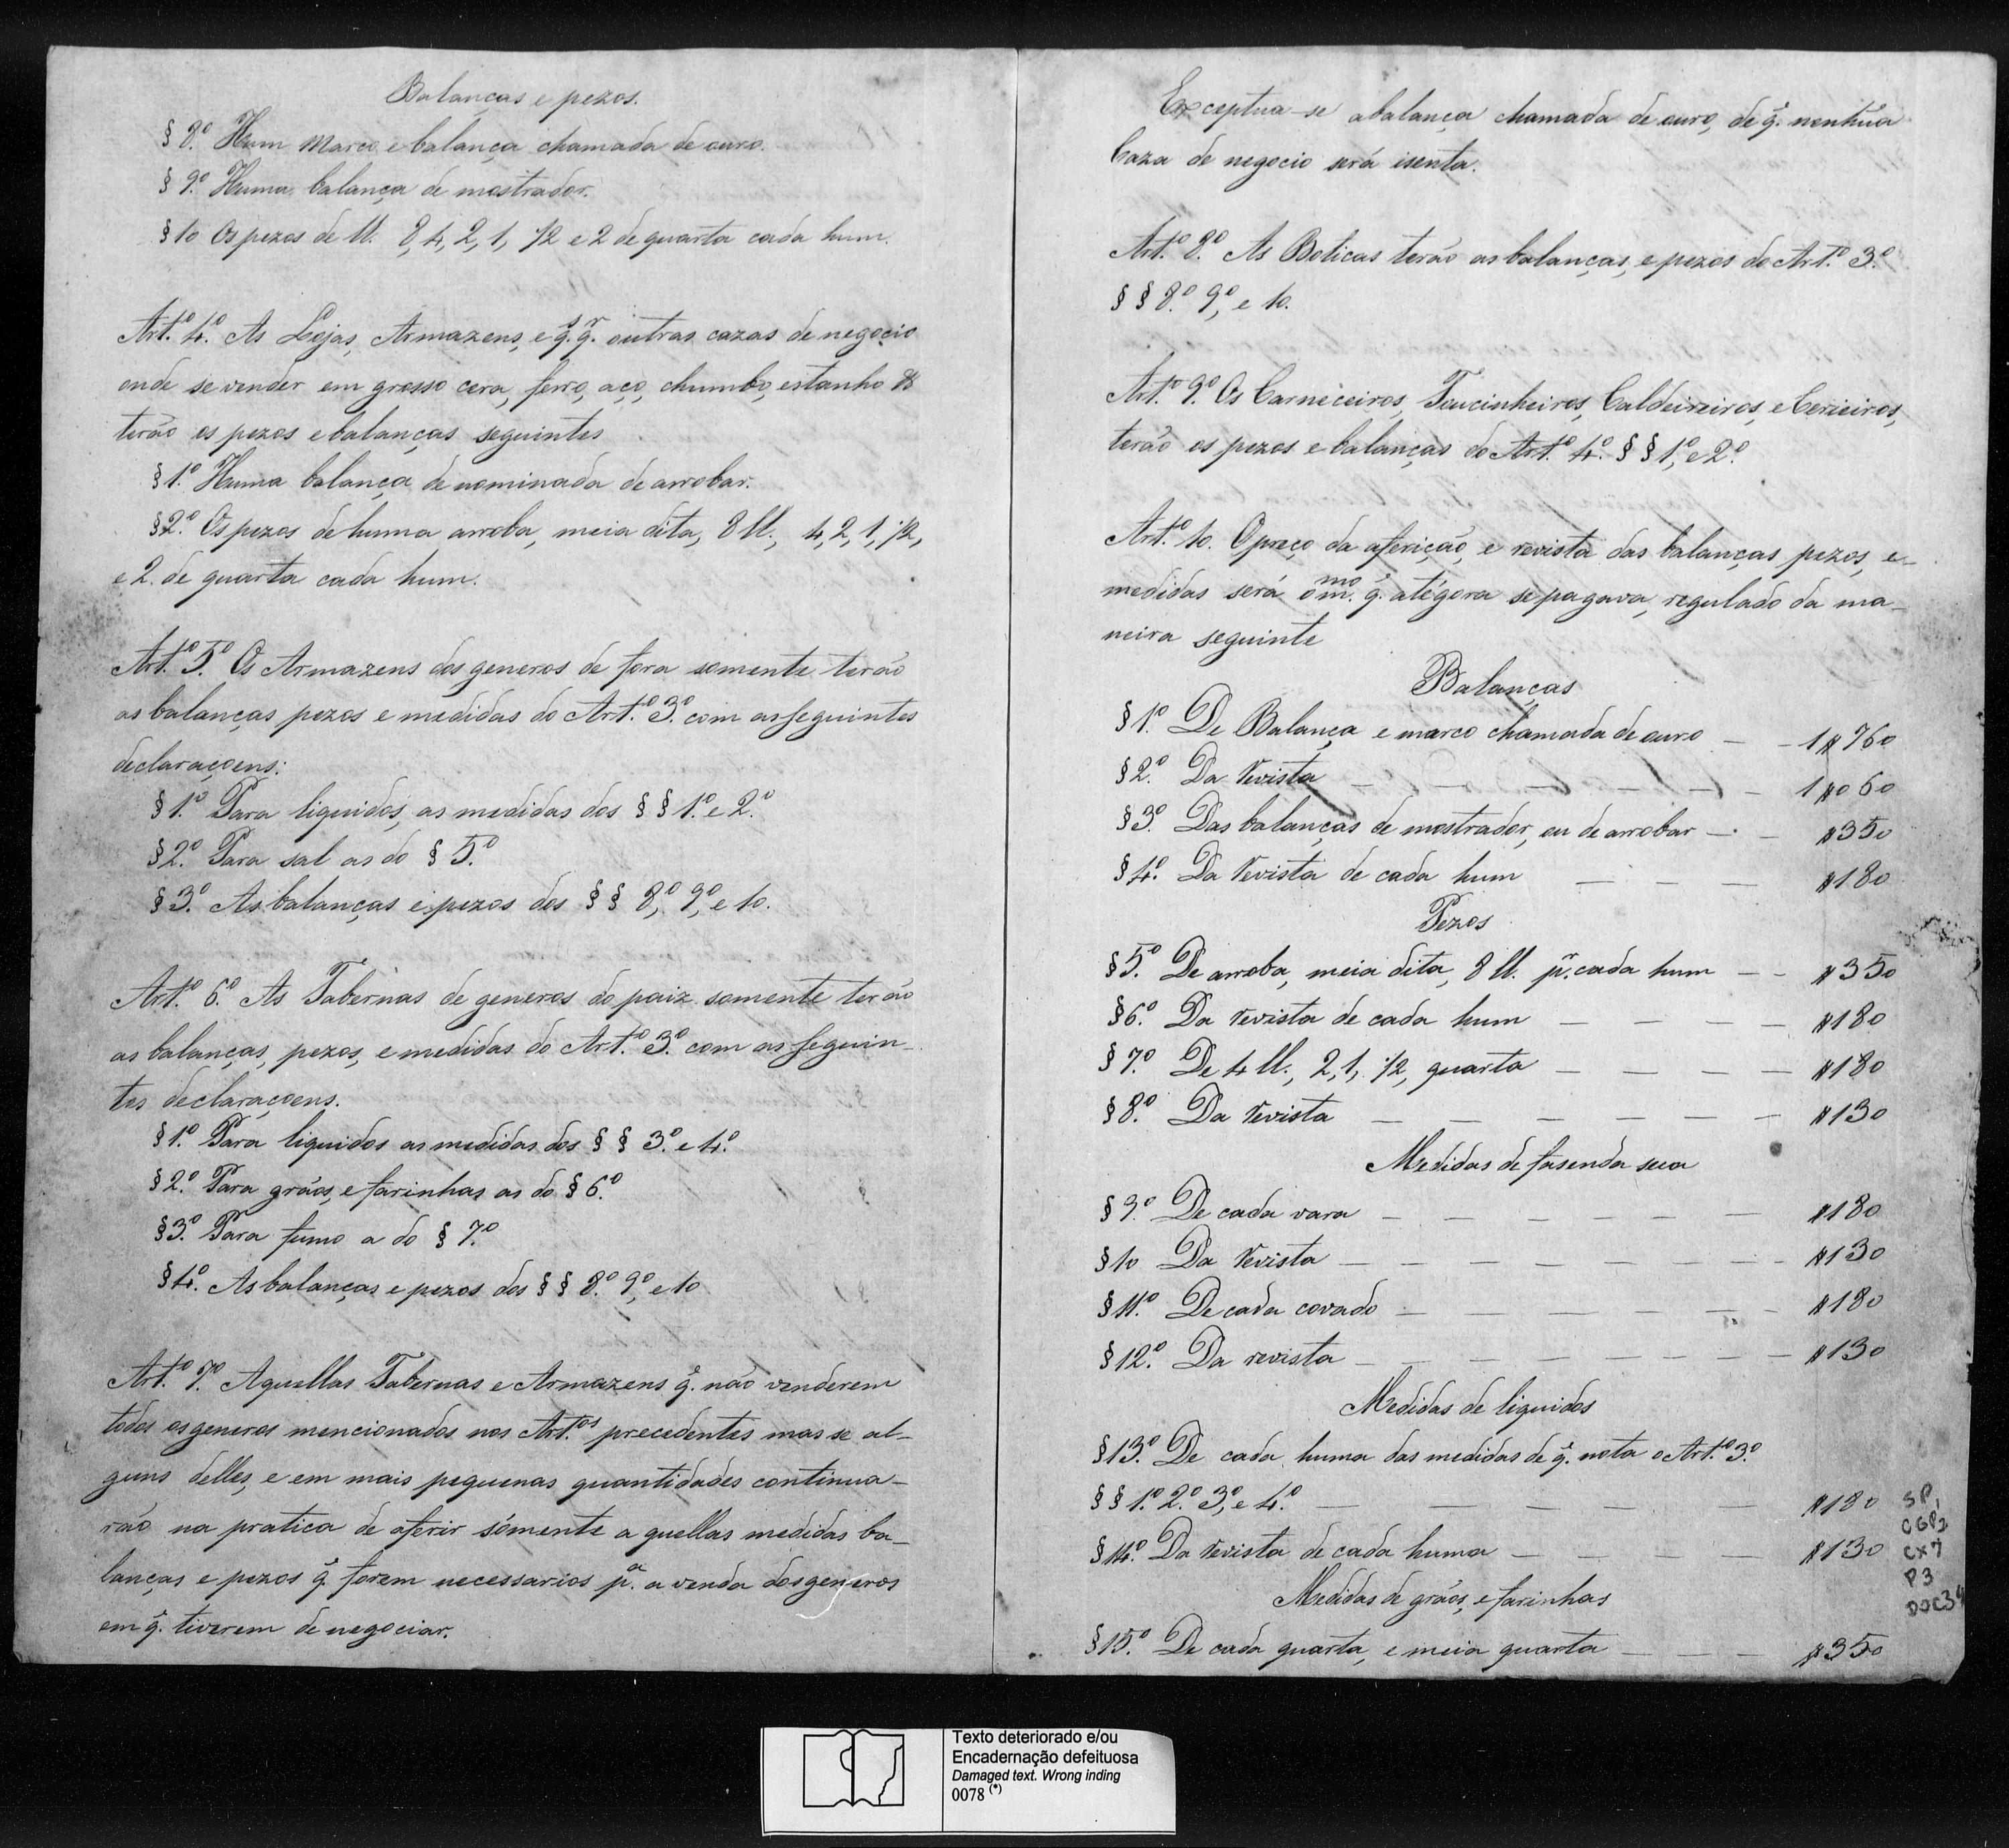 Balanças e pezos.
§ 8.º Hum Marco e balança chamada de ouro.
§ 9.º Huma balança de mostrador.
§ 10 Os pezos de ll. 8, 4, 2, 1, 1/2 e 2 de quarta cada hum.
Art.º 4.º As Lojas, Armazens, e q.s q.r outras cazas de negocio
onde se vender em grosso cera, ferro, aço, chumbo, estanho &
terão os pezos e balanças seguintes
§ 1.º Huma balança denominada de arrobar.
§ 2.º Os pezos de huma arroba, meia dita, 8 ll., 4, 2, 1, 1/2,
e 2. de quarta cada hum.
Art.º 5.º Os Armazens dos generos de fora somente terão
as balanças pezos e medidas do Art.º 3.º com as seguintes
declaraçoens:
§ 1.º Para liquidos, as medidas dos § § 1.º e 2.º
§ 2.º Para sal as do § 5.º
§ 3.º As balanças e pezos dos § § 8.º, 9.º, e 10.
Art.º 6.º As Tabernas de generos do paiz somente terão
as balanças, pezos, e medidas do Art.º 3.º com as seguin-
tes declaraçoens.
§ 1.º Para liquidos as medidas dos § § 3.º e 4.º
§ 2.º Para grãos, e farinhas as do § 6.º
§ 3.º Para fumo a do § 7.º
§ 4.º As balanças e pezos dos § § 8.º 9.º, e 10
Art.º 7.º Aquellas Tabernas e Armazens q̃. não venderem
todos os generos mencionados nos Art.os precedentes mas se al-
guns delles, e em mais pequenas quantidades continua-
rão na pratica de aferir sómente a quellas medidas ba-
lanças e pezos q̃. forem necessarios p.a a venda dos generos
em q̃. tiverem de negociar.
Exceptua-se a balança chamada de ouro, de q̃. nenhũa
Caza de negocio será isenta.
Art.º 8.º As Boticas terão as balanças, e pezos do Art.º 3.º
§ § 8.º 9.º, e 10.
Art.º 9.º Os Carniceiros, Toucinheiros, Caldeireiros, e Cerieiros,
terão os pezos e balanças do Art.º 4.º § § 1.º, e 2.º
Art.º 10. O preço da aferição, e revista das balanças pezos, e
medidas será o m.mo q̃. atégora se pagava, regulado da ma-
neira seguinte
Balanças
§ 1.º De Balança e marco chamada de ouro — - 1$760
§ 2.º Da Revista — — — — — — 1$060
§ 3.º Das balanças de mostrador, ou de arrobar — - $350
§ 4.º Da Revista de cada hum — — — $180
Pezos
§ 5.º De arroba, meia dita, 8 ll. p.r cada hum — - $350
§ 6.º Da Revista de cada hum — — — — $180
§ 7.º De 4 ll., 2, 1, 1/2, quarta — — — — $180
§ 8.º Da Revista — — — — — — $130
Medidas de fasenda seca
§ 9.º De cada vara — — — — — — $180
§ 10 Da Revista — — — — — — — $130
§ 11.º De cada covado — — — — — — $180
§ 12.º Da revista — — — — — — — $130
Medidas de liquidos
§ 13.º De cada huma das medidas de q̃. nota o Art.º 3.º
§ § 1.º 2.º 3.º, e 4.º — — — — — $180
§ 14.º Da Revista de cada huma — — — — $130
Medidas de grãos, e farinhas
§ 15.º De cada quarta, e meia quarta — — — $350
SP1
CGP2
CX7
P3
DOC34
Texto deteriorado e/ou
Encadernação defeituosa
Damaged text. Wrong inding
0078 (*)